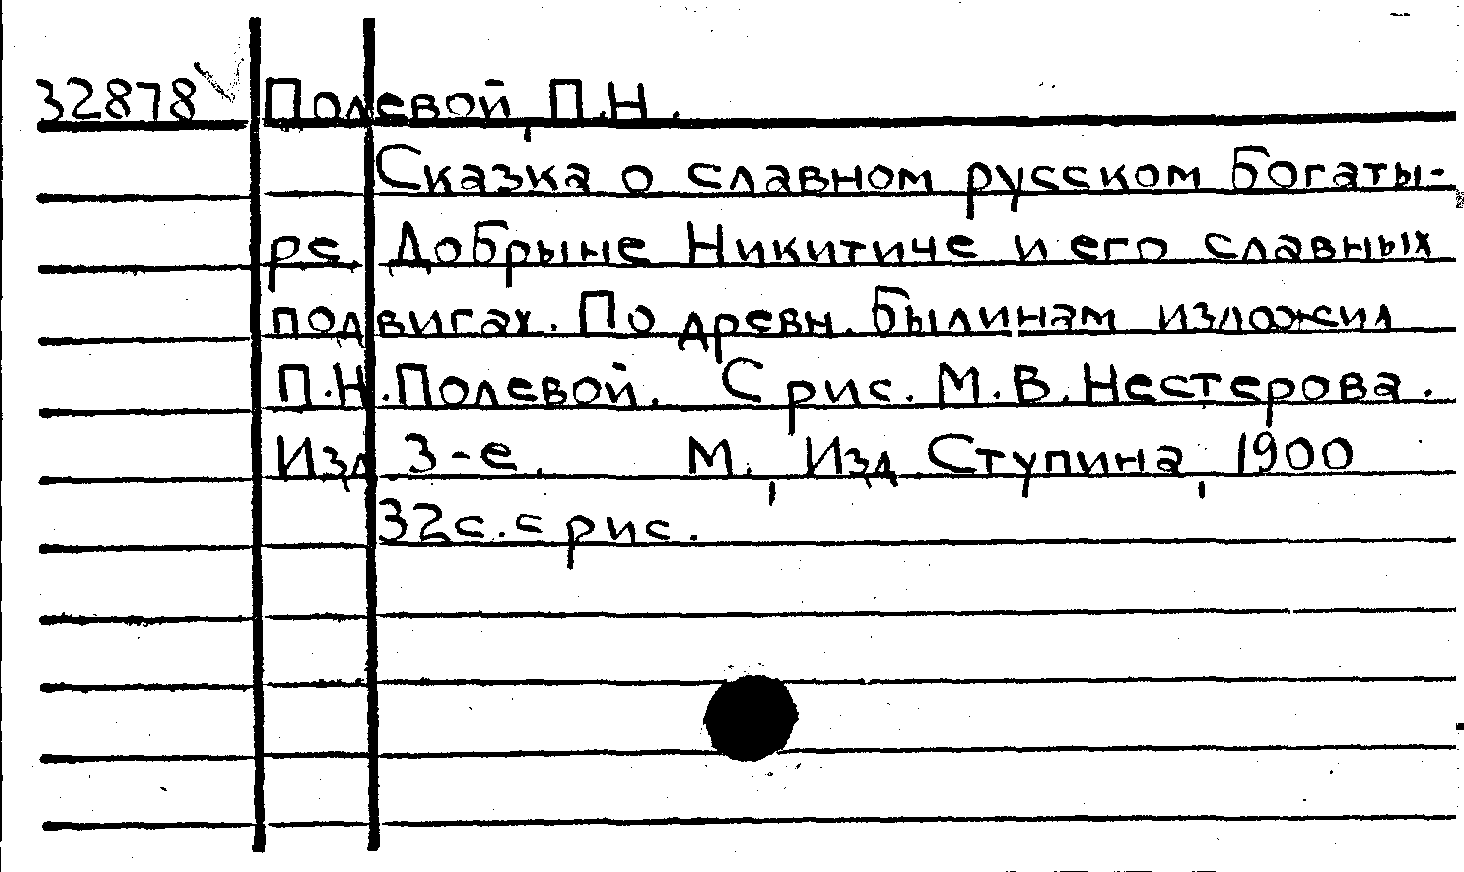 32878 Полевой, П.Н.
Сказка о славном русском богаты-
ре Добрыне Никитиче и его славных
подвигах. По древн. былинам изложил
П.Н. Полевой. С рис. М.В. Нестерова.
Изд 3-е. М., Изд. Ступина, 1900
32с. с рис.